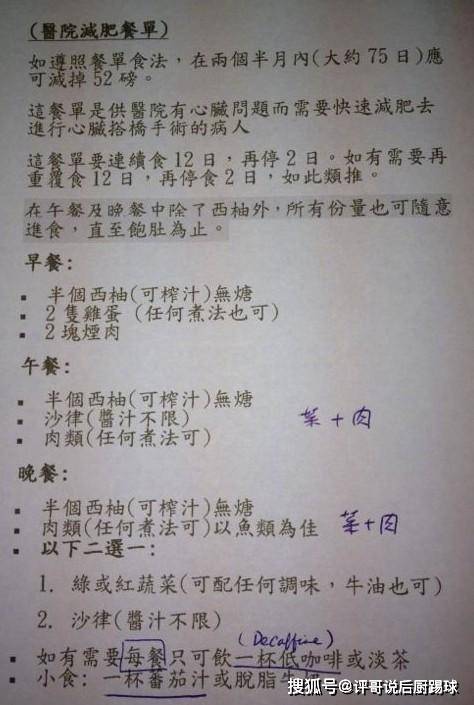 (醫院減肥餐單)
如遵照餐單食法，在兩個半月內(大約75日)應
可減掉52磅。
這餐單是供醫院有心臟問題而需要快速減肥去
進行心臟搭橋手術的病人
這餐單要連續食12日，再停2日。如有需要再
重覆食12日，再停食2日，如此類推。
在午餐及晚餐中除了西柚外，所有份量也可隨意
進食，直至飽肚為止。
早餐：
▪ 半個西柚(可榨汁)無糖
▪ 2隻雞蛋 (任何煮法也可)
▪ 2塊煙肉
午餐：
▪ 半個西柚(可榨汁)無糖
▪ 沙律(醬汁不限) 菜+肉
▪ 肉類(任何煮法可)
晚餐：
▪ 半個西柚(可榨汁)無糖
▪ 肉類(任何煮法可)以魚類為佳 菜+肉
▪ 以下二選一：
1. 綠或紅蔬菜(可配任何調味，牛油也可)
2. 沙律(醬汁不限)
(Decaffine)
▪ 如有需要每餐只可飲一杯低咖啡或淡茶
▪ 小食：一杯蕃茄汁或脫脂牛奶
搜狐号@评哥说后厨踢球